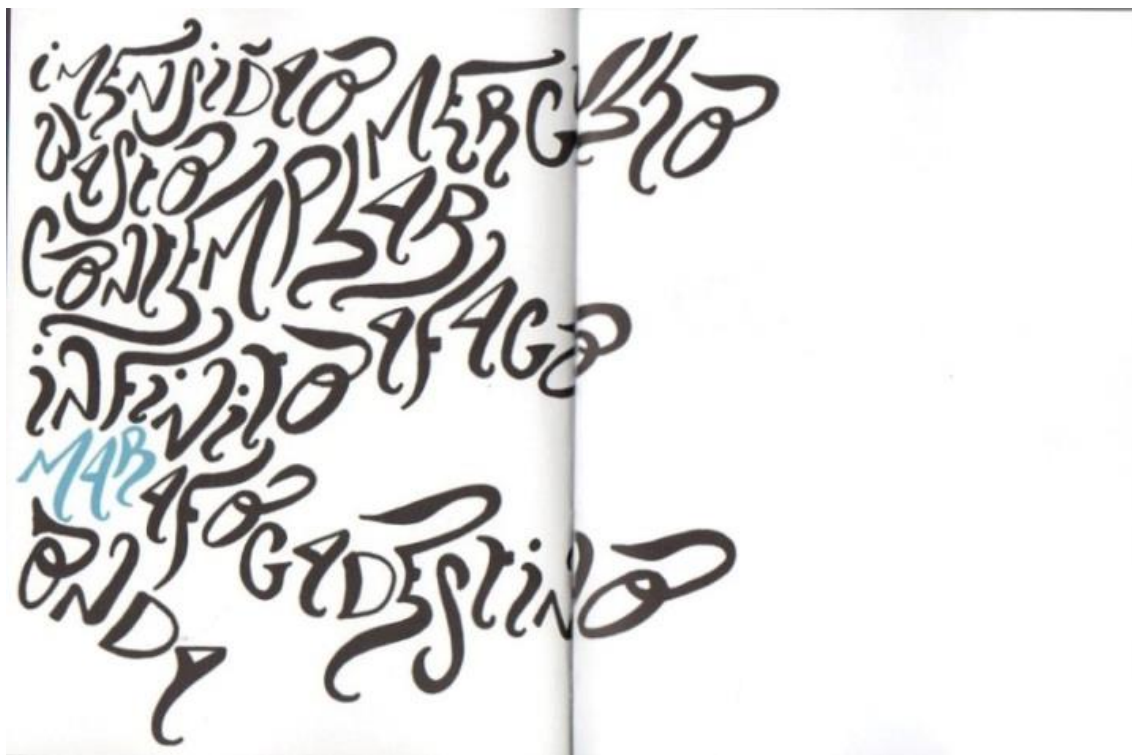 iMENSiDÃO MERGULHO
VASTO
CONTEMPLAR
iNFiNiTO AFAGO
MAR AFOGA DESTiNO
ONDA